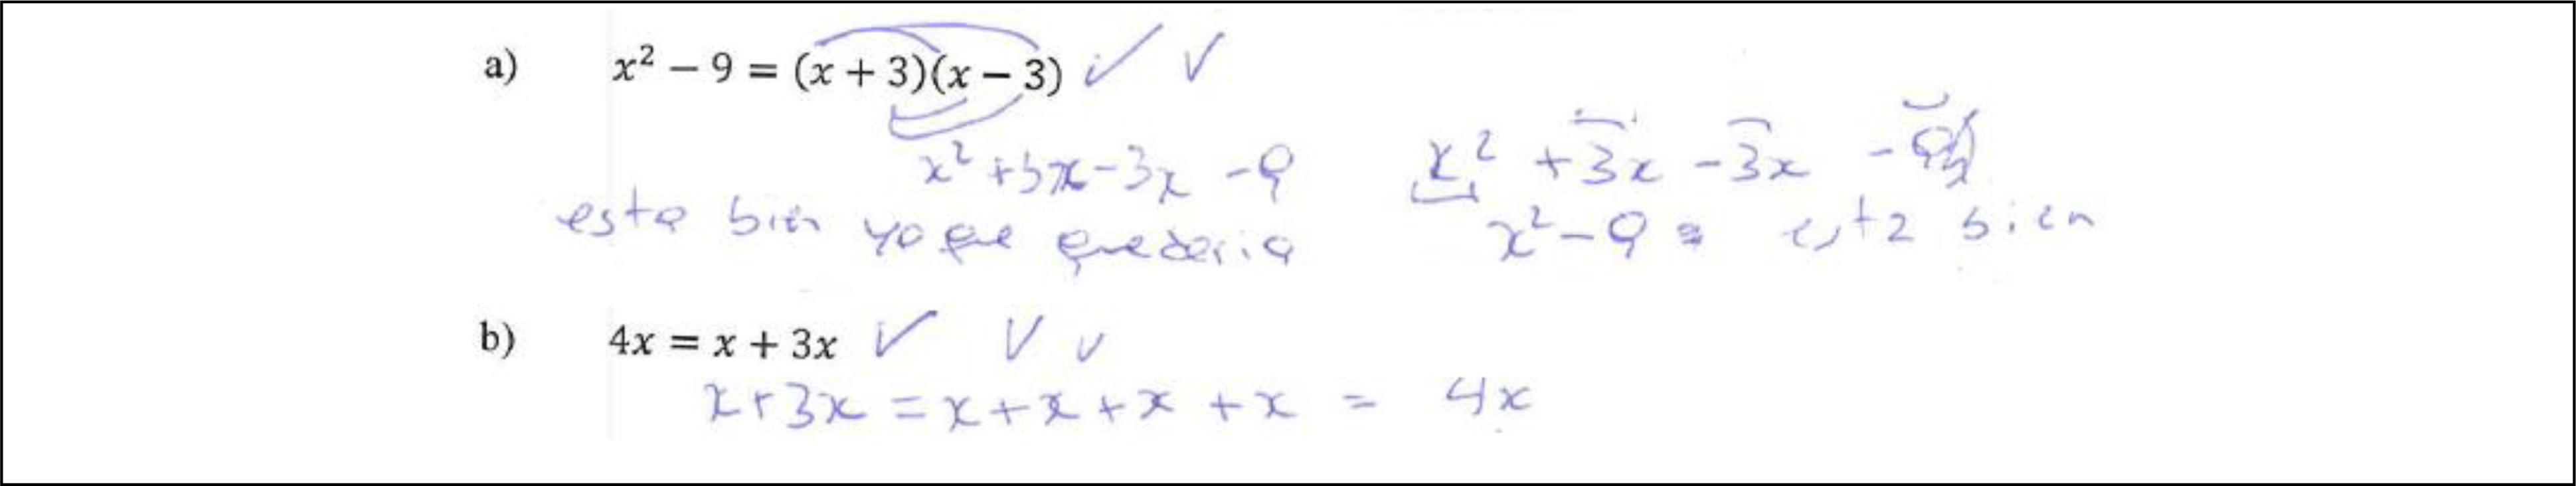 a) x² − 9 = (x + 3)(x − 3) ✓ ✓
x² +3x-3x -9
x² +3x -3x -9
esta bien ya que quedaria
x²-9 = esta bien
b) 4x = x + 3x ✓ ✓ ✓
x+3x = x+x+x+x = 4x